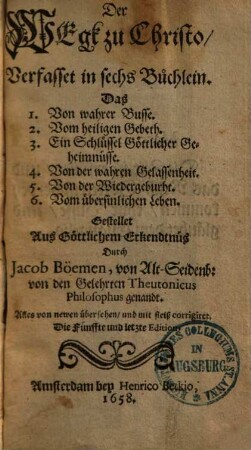 Der
WEgk zu Christo/
Verfasset in sechs Büchlein.
Daß
1. Von wahrer Busse.
2. Vom heiligen Gebeth.
3. Ein Schlüssel Göttlicher Ge-
heimnüsse.
4. Von der wahren Gelassenheit.
5. Von der Wiedergeburht.
6. Vom übersinlichen Leben.
Gestellet
Aus Göttlichem Erkendtnüs
Durch
Jacob Böemen, von Alt-Seidenb:
von den Gelehrten Theutonicus
Philosophus genandt.
Alles von newen übersehen/ und mit fleiß corrigiret.
Die Fünffte und letzte Edition
COLLEGIUM
IN
AUGSBURG
ST. ANNA
Amsterdam bey Henrico Betkio,
1658.